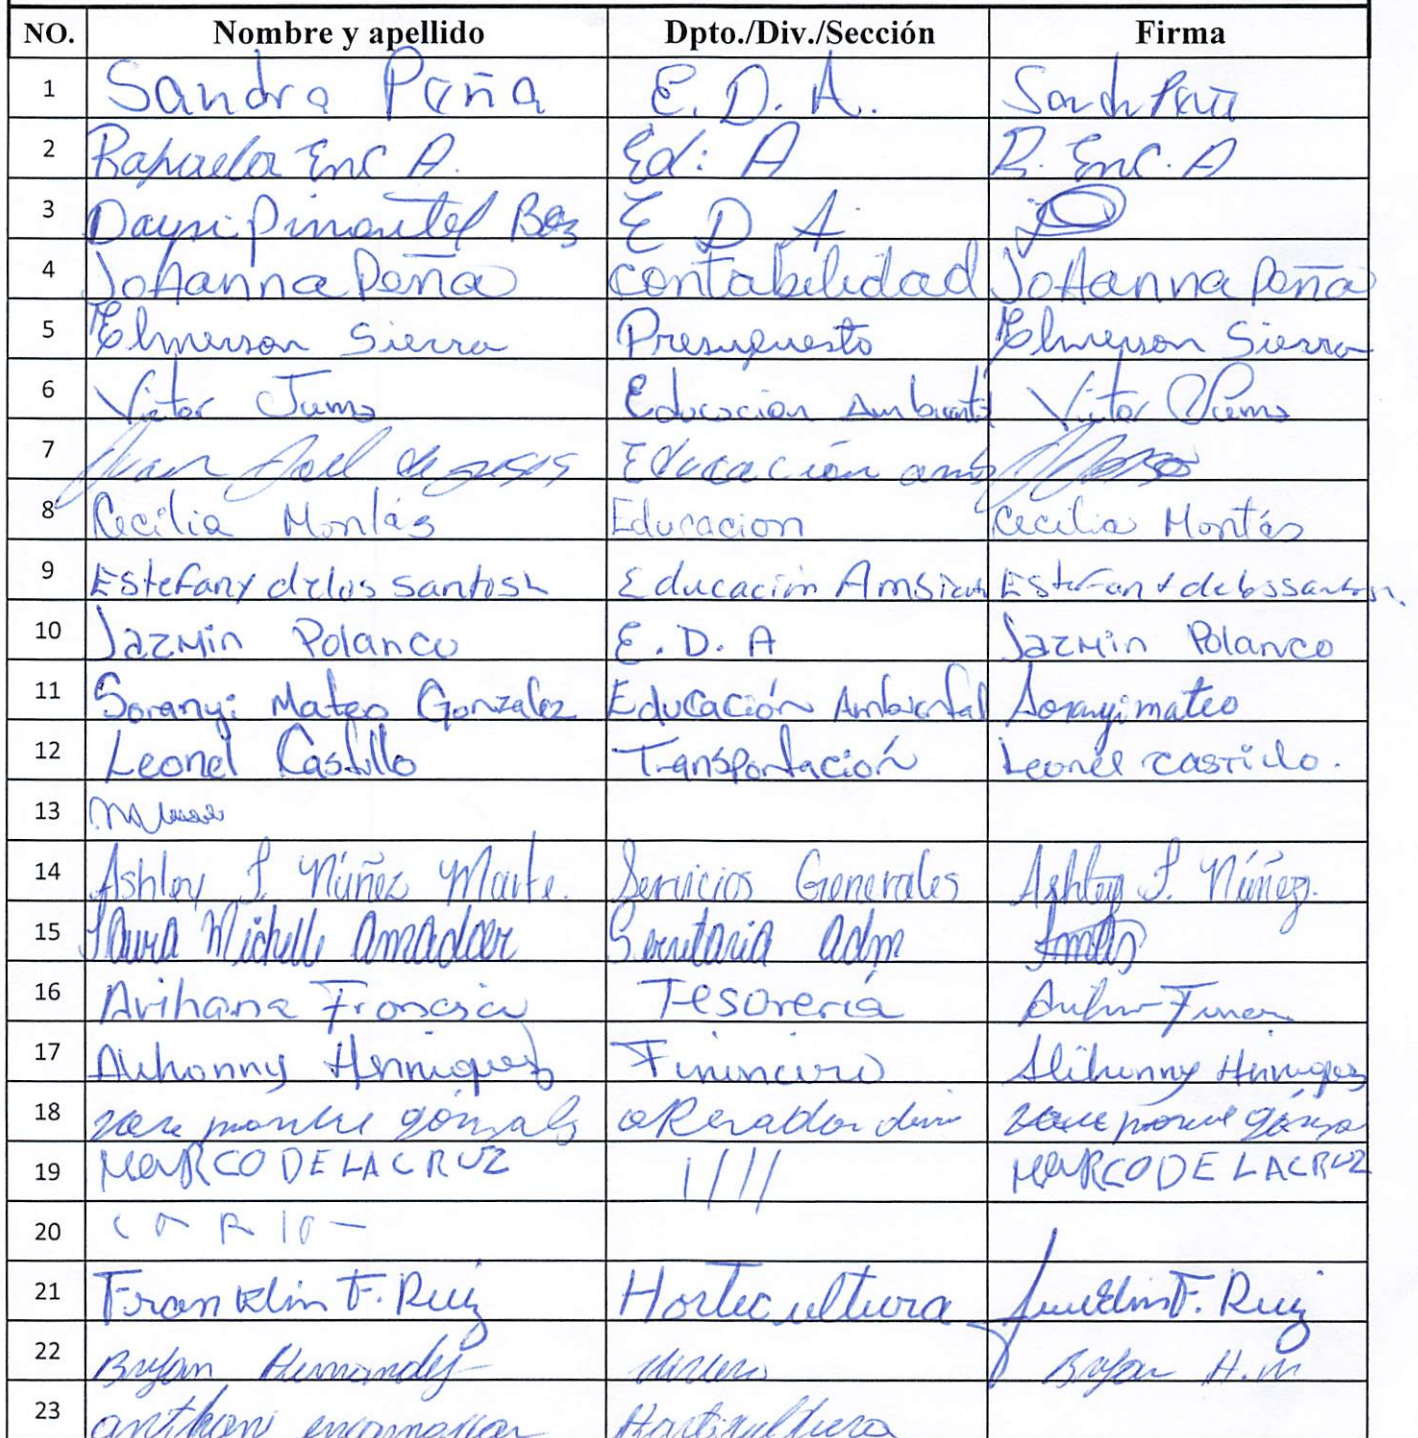 NO. Nombre y apellido Dpto./Div./Sección Firma
1 Sandra Peña E. D. A. Sandr Peña
2 Rafaela Enc A. Ed: A R. Enc. A
3 Daysi Pimentel Báez E D A
4 Johanna Peña contabilidad Johanna Peña
5 Elmerson Sierra Presupuesto Elmerson Sierra
6 Victor Educacion Ambiental Victor
7 Juan Joel de Educación amb
8 Cecilia Montás Educacion Cecilia Montás
9 Estefany de los santos H Educación Ambient Estefany de los santos H.
10 Jazmin Polanco E. D. A Jazmin Polanco
11 Soranyi Mateo Gonzalez Educación Ambiental Soranyi mateo
12 Leonel Castillo Transportación Leonel castillo.
13
14 Ashley S. Núñez Marte. Servicios Generales Ashley S. Núñez.
15 Laura Michelle Amadaor Secretaria adm
16 Arihana Francisco Tesorería
17 Alihonny Henriquez Alihonny Henriquez
18 oPerador
19 MARCO DE LA CRUZ //// MARCO DE LA CRUZ
20
21 Franklin F. Ruiz Horticultura Franklin F. Ruiz
22 Bryan Hernandez Bryan H. m
23 anthoni encarnacion Horticultura